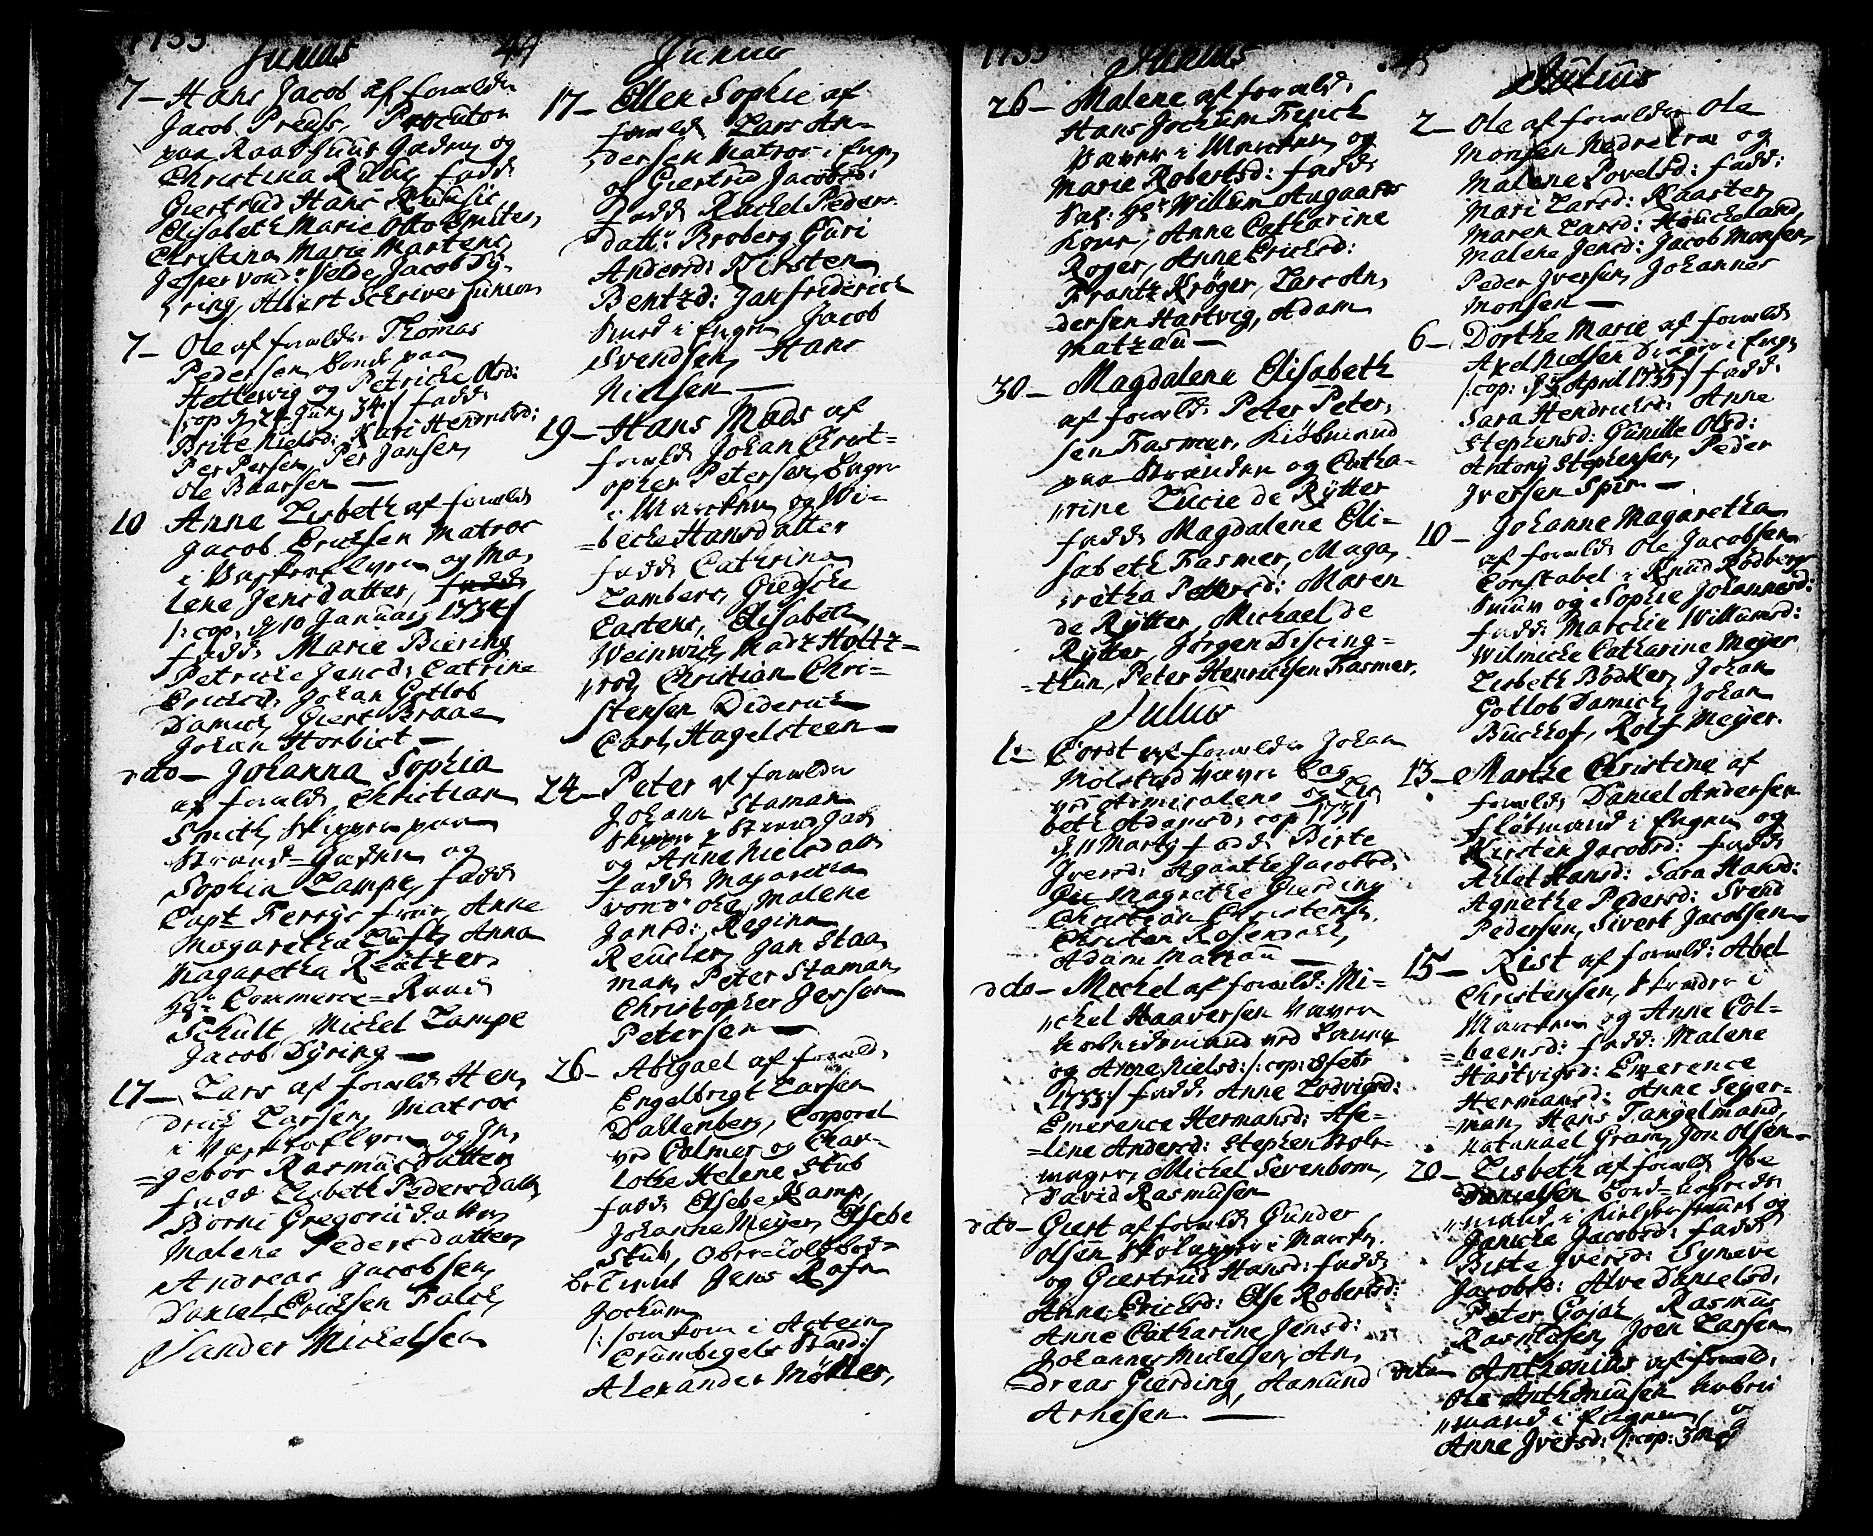 1735 Junius 44
7 – Hans Jacob af forældr
Jacob Preuss, Procutor
paa Raadhuus Gaden og
Christina fadd:
Giertrud Hans
Elisabeth Marie Otto Smiters,
Christina Maria Martens
Jesper vond: Velde, Jacob Dy-
ring, Albert Schriver Junior
7 – Ole af forældr Thomas
Pedersen bonde paa
Hetlewig og Petricke Olsd:
/: cop d 24 Jun 34 :/ fadd:
Brite Nielsd: Kari Hendricksd:
Per Persen, Per Jansen,
Ole Baarsen —
10 Anne Lisbeth af forældr
Jacob Ericksen Matros
i og Ma,
lene Jensdatter,
/: cop. d 10 Januarij 1734 :/
fadd: Marie Biering
Petricke Jensd: Catrine
Ericksd: Johan Gotlob
Damick, Giert Braae
Johan Horbist —
dito – Johanna Sophia
af forældr Christian
Smith, Skipper paa
Strand-Gaden og
Sophia Lampe, fadd:
Capt Ferrys frue, Anne
Magaretha Anna
Magaretha Reutzer,
Hr Commerce-Raad
Schult, Michel Lampe
Jacob Dyring —
17 – Lars af forældr Hen,
drick Larsen, Matros
i og In,
=gebor Rasmusdatter
fadd: Lisbeth Pedersdatt,
Børni Gregorii datter,
Malene Pedersdatter,
Andreas Jacobsen,
Daniel Ericksen Falck,
Sander Michelsen
Junius
17 – Ellen Sophie af
forældr Lars An-
dersen Matros i Engen
og Giertrud Jacobsd:
fadd: Rachel Peders-
datt: Broberg Guri
Andersd: Kirsten
Bentzd: Jan Friderich
Smed i Engen Jacob
Svendsen, Hans
Nielsen —
19 – Hans Mads af
forældr Johan Christ=
opher Petersen,
i Marken og Wi-
=becke Hansdatter
fadd: Cathrina
Lambers, Giedsche
Castens, Elisabeth
Weinwich, Madz Holtz=
rod, Christian Chri-
stensen Diderich
Carl, Hagelsteen —
24 – Peter af forældr
Johann Staman
Skipper p Strand Gad
og Anne Nielsdatt
fadd: Magaretha
vond: Malene
Jansd: Regina
Reucler, Jan Staa
man, Peter Staman
Christopher Jessen
Petersen —
26 – Abigael af forældr
Engelbrigt Larsen
Dallenberg, Corporal
ved Calmer og Char-
lotte Helene Stub
fadd: Elsebe Kamp,
Johanna Meyer, Elsebe
Stub, Obr=
Jens Rafn
Jochum
/: som kom i
Crambigels Sted :/
Alexander Møller,
1735 Junius 45
26 – Malene af forældr
Hans Jochum Fenck
Væver i Marken og
Marie Robertsd: fadd:
Sal: Hr Willum Augaards
Kone, Anne Catharine
Roger, Anne Ericksd:
Frantz Krøger, Lars An,
dersen Hartvig, Adam
Matzau —
30 – Magdalene Elisabeth
af forældr Peter Peter,
sen Fasmer, Kiøbmand
paa Stranden og Catha-
rine Lucie de Rytter
fadd: Magdalene Eli-
sabeth Fasmer, Maga,
retha Pettersd: Maren
de Rytter, Michael de
Rytter, Jørgen Discing=
=thun, Peter Henrichsen Fasmer,
Julius
1 – Cordt af forældr Johan
Molsted Væver
ved Admiralens og Lis,
beth Adamsd: cop 1731
d 11 Marty fadd: Birte
Iversd: Aganthe Jacobsd:
Magrethe Gierding
Christian Christensen,
Christen Rosendahl,
Adam Matzau —
dito – Michel af forældr: Mi-
chel Haaversen Væver
ved
og Anne Nielsd: /: cop: d febr
1733 :/ fadd: Anne Lodvigsd:
Emerence Hermansd: Ase-
=line Andersd: Stephen
mager, Michel Sevenbom,
David Rasmusen
dito – Giert af forældr Gunder
Olsen i Marck,
og Giertrud Hansd: fadd:
Anne Ericksd: Else Robertsd:
Anne Catharine Jensd:
Johannes Michelsen, An,
=dreas Gierding, Aamund
Arnesen —
Julius
2 – Ole af forældr Ole
Monsen Nedretræ og
Malene Povelsd: fadd:
Mari Larsd: Raaster,
Maren Larsd: Houckeland,
Malene Jensd: Jacob Monsen,
Peder Iversen, Johannes
Monsen —
6 – Dorthe Marie af forældr
Axel Nielsen Drager i Engen
/: cop: d April 1735 :/ fadd:
Sara Hendricksd: Anne
Stephensd: Gunille Olsd:
Antony Stephensen, Peder
Iversen Spir —
10 – Johanne Magaretha
af forældr Ole Jacobsen
Constabel i Knud Rodbergs
Smuw og Sophie Johannesd:
fadd: Marchie Willumsd:
Wilmicke Catharine Meyer
Lisbeth Bødker, Johan
Gotlob Damick, Johan
Buckhof, Rolf Meyer.
13 – Marthe Christine af
forældr Daniel Andersen
fløtmand i Engen og
Kirsten Jacobsd: fadd:
Adlet Hansd: Sara Hansd:
Agnethe Pedersd: Svend
Pedersen, Sivert Jacobsen —
15 – Rist af forældr: Abel
Christensen, Skræder i
Marken og Anne Col-
=beensd: fadd: Malene
Hartvigsd: Emerence
Hermansd: Anne Seger-
=man, Hans Tangelmand,
Natanael Gram, Jon Olsen —
20 – Lisbeth af forældr Ibe
Danielsen bord=
mand i og
Janicke Jacobsd: fadd:
Birte Iversd: Syneve
Jacobsd: Alve Danielsd:
Peter Gojah, Rasmus
Rasmusen, Joen Larsen
dito Anthonius af forældr
Ole Anthoniusen
mand i Engen,
Anne Iversd: /: cop: 3